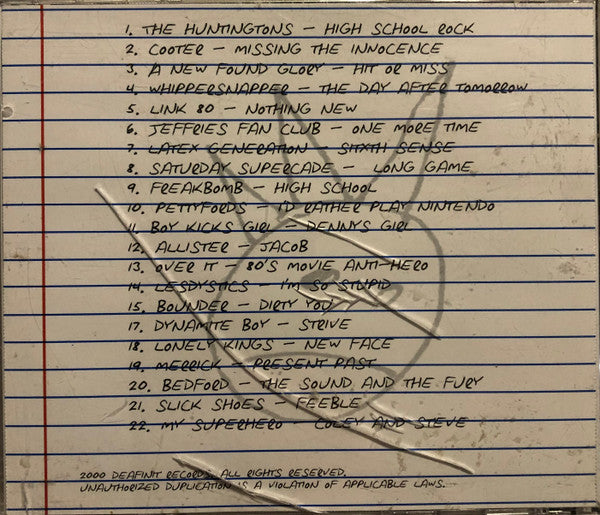 1. THE HUNTINGTONS - HIGH SCHOOL ROCK
2. COOTER - MISSING THE INNOCENCE
3. A NEW FOUND GLORY - HIT OR MISS
4. WHIPPERSNAPPER - THE DAY AFTER TOMORROW
5. LINK 80 - NOTHING NEW
6. JEFFRIES FAN CLUB - ONE MORE TIME
7. LATEX GENERATION - SITXTH SENSE
8. SATURDAY SUPERCADE - LONG GAME
9. FREAKBOMB - HIGH SCHOOL
10. PETTYFORDS - I'D RATHER PLAY NINTENDO
11. BOY KICKS GIRL - DENNYS GIRL
12. ALLISTER - JACOB
13. OVER IT - 80'S MOVIE ANTI-HERO
14. LESDYSTICS - I'M SO STUPID
15. BOUNDER - DIRTY YOU
17. DYNAMITE BOY - STRIVE
18. LONELY KINGS - NEW FACE
19. MERRICK - PRESENT PAST
20. BEDFORD - THE SOUND AND THE FURY
21. SLICK SHOES - FEEBLE
22. MY SUPERHERO - COLEY AND STEVE
2000 DEAFINIT RECORDS. ALL RIGHTS RESERVED.
UNAUTHORIZED DUPLICATION IS A VIOLATION OF APPLICABLE LAWS.